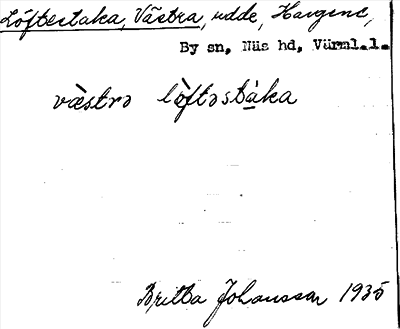 Löftestaka, Västra, udde, Haugene,
By sn, Näs hd, Värml.l.
væ̀strə lö̀ftəstàka
Britta Johansson 1935